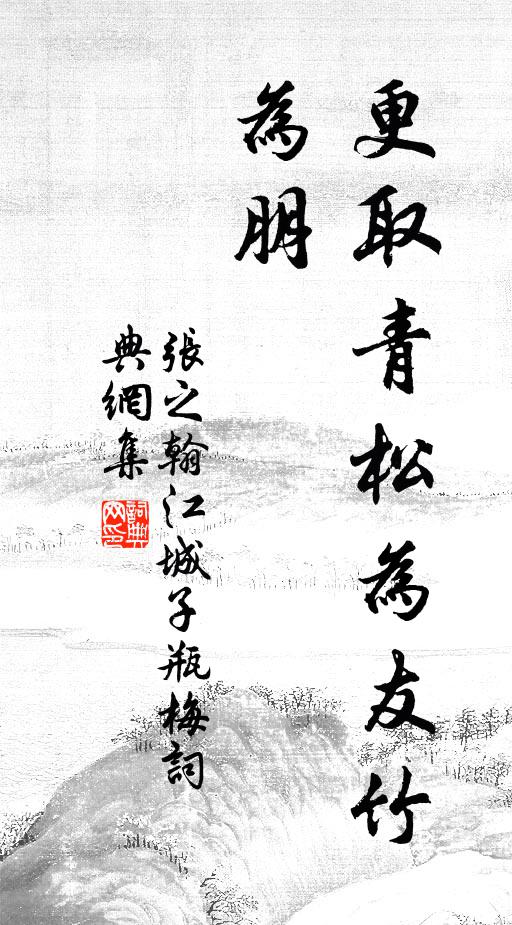 更取青松為友竹
為朋
張之翰江城子瓶梅詞
典網集
詞典
网印